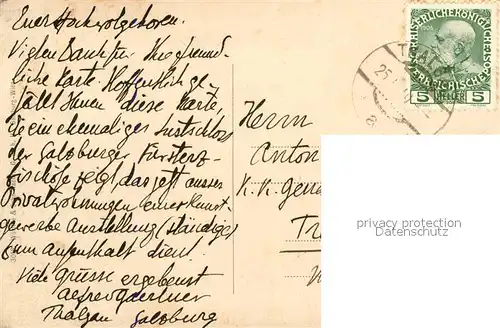 Euer Hochwolgeboren.
Vielen Dank für Ihre freund-
liche Karte. Hoffentlich ge-
fällt Ihnen diese Karte,
die ein ehemaliges Lustschloss
der Salzburger Fürsterz-
bischöfe zeigt, das jetzt ausser
Privatwohnungen einer Kunst-
gewerbe Ausstellung (ständige)
zum Aufenthalt dient.
Viele Grüsse ergebenst
Alfred Gaertner
Thalgau Salzburg
Herrn
Anton
K.K. Gene
Tr
1908
5 HELLER 5
THAL
25
a
privacy protection
Datenschutz